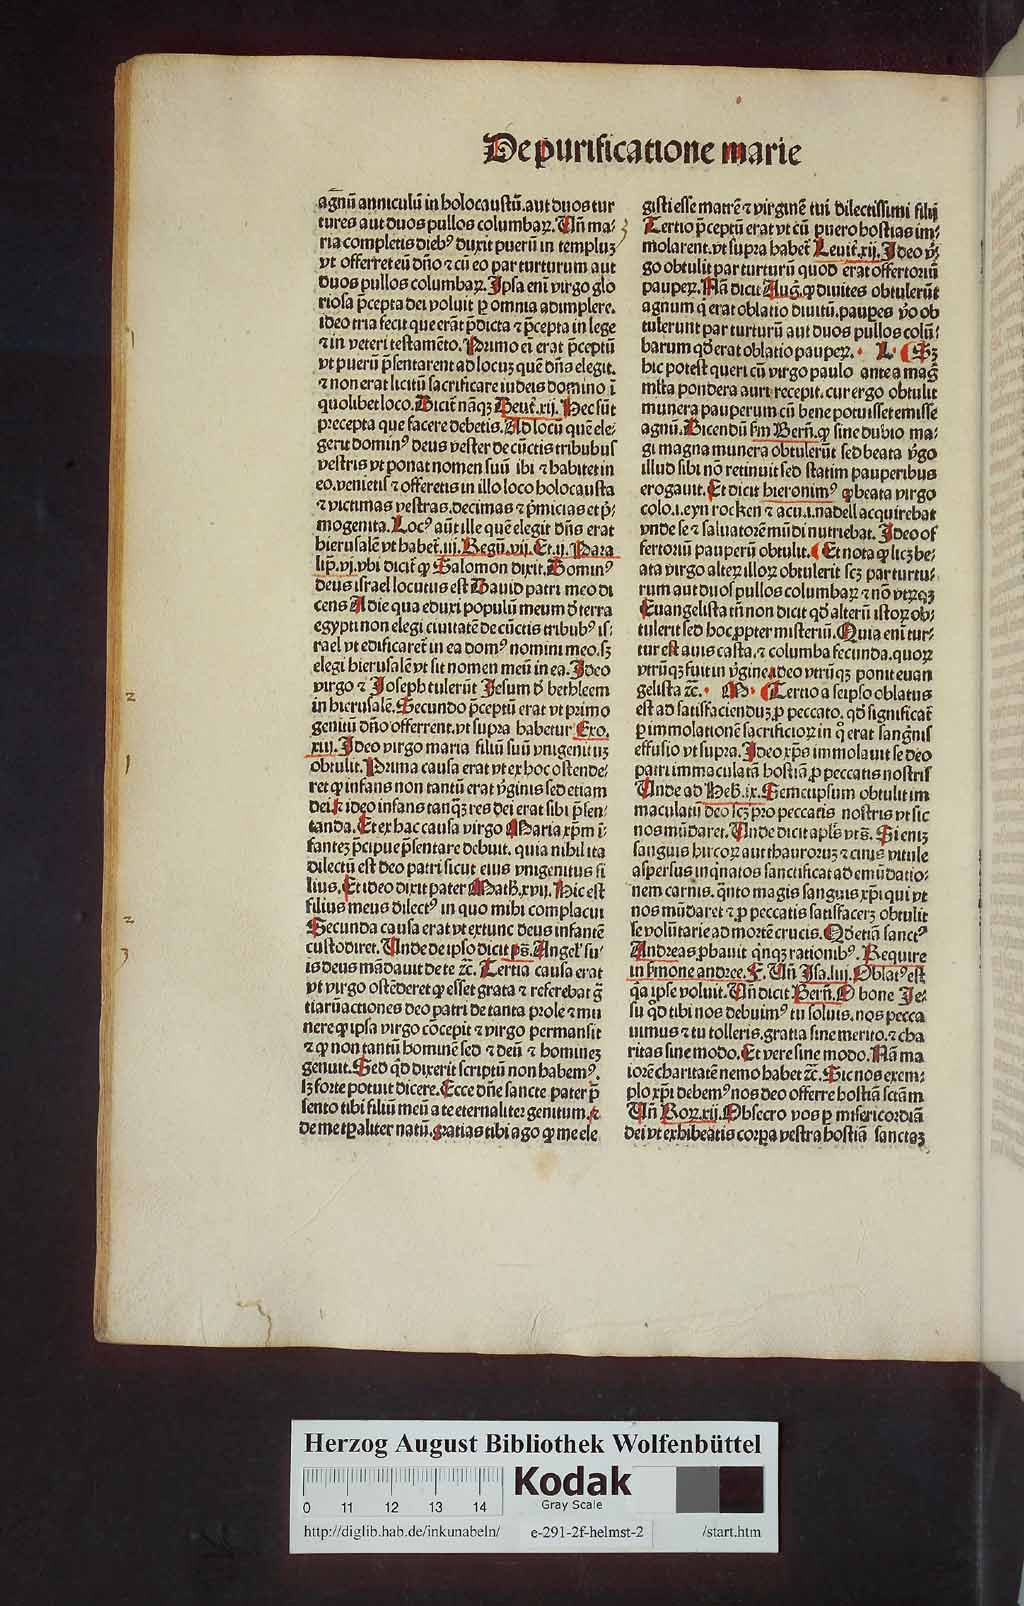 De purificatione marie
agnū anniculū in holocaustū. aut duos tur
tures aut duos pullos columbaꝝ. Uñ ma⸗
ria completis diebꝰ duxit puerū in templuꝫ
vt offerret eū dño ⁊ cū eo par turturum aut
duos pullos columbaꝝ. Ipsa eni virgo glo
riosa p̄cepta dei voluit ꝑ omnia adimplere.
ideo tria fecit que erāt p̄dicta ⁊ p̄cepta in lege
⁊ in veteri testamēto. Primo eī erat p̄ceptū
vt puerū p̄sentarent ad locuꝫ quē dñs elegit.
⁊ non erat licitū sacrificare iudeis domino ī
quolibet loco. Dicit̄ nāqꝫ Deut̄. xij. Hec sūt
precepta que facere debetis. Ad locū quē ele⸗
gerit dominꝰ deus vester de cūctis tribubus
vestris vt ponat nomen suū ibi ⁊ habitet in
eo. venietis ⁊ offeretis in illo loco holocausta
⁊ victimas vestras. decimas ⁊ p̄micias et p̄⸗
mogenita. Locꝰ aūt ille quē elegit dñs erat
hierusalē vt habet̄. iij. Regū. vij. Et. ij. Para
lip̄. vj. vbi dicit̄ ꝙ Salomon dixit. Dominꝰ
deus israel locutus est Dauid patri meo di
cens A die qua eduxi populū meum ð terra
egypti non elegi ciuitatē de cūctis tribubꝰ is⸗
rael vt edificaret̄ in ea domꝰ nomini meo. sꝫ
elegi hierusalē vt sit nomen meū in ea. Ideo
virgo ⁊ Joseph tulerūt Jesum ð bethleem
in hierusalē. Secundo p̄ceptū erat vt primo
genitū dño offerrent. vt supra habetur Exo.
xiij. Ideo virgo maria filiū suū vnigenituꝫ
obtulit. Prima causa erat vt ex hoc ostende⸗
ret ꝙ infans non tantū erat v̄ginis sed etiam
dei ⁊ ideo infans tanqꝫ res dei erat sibi p̄sen⸗
tanda. Et ex hac causa virgo Maria xp̄m ī⸗
fanteꝫ p̄cipue p̄sentare debuit. quia nihil ita
dilectū est deo patri sicut eius vnigenitus fi
lius. Et ideo dixit pater Math̄. xvij. Hic est
filius meus dilectꝰ in quo mihi complacui
Secunda causa erat vt extunc deus infantē
custodiret. Unde de ipso dicit ps̄. Angel̄ su⸗
is deus mādauit de te ⁊c̄. Tertia causa erat
vt virgo ostēderet ꝙ esset grata ⁊ referebat g̃
tiarū actiones deo patri de tanta prole ⁊ mu
nere ꝙ ipsa virgo cōcepit ⁊ virgo permansit
⁊ ꝙ non tantū hominē sed ⁊ deū ⁊ homineꝫ
genuit. Sed qð dixerit scriptū non habemꝰ.
sꝫ forte potuit dicere. Ecce dñe sancte pater p̄
sento tibi filiū meū a te eternaliter genitum. ⁊
de me tp̄aliter natū. gratias tibi ago ꝙ me ele
gisti esse matrē ⁊ virginē tui dilectissimi filij
Tertio p̄ceptū erat vt cū puero hostias im⸗
molarent. vt supra habet̄ Leuit̄. xij. Ideo v̄⸗
go obtulit par turturū quod erat offertoriū
pauperꝝ. Nā dicit Aug̃. ꝙ diuites obtulerūt
agnum q̄ erat oblatio diuitū. pauꝑes v̄o ob
tulerunt par turturū aut duos pullos colū⸗
barum qð erat oblatio pauperꝝ. L. Sꝫ
hic potest queri cū virgo paulo antea mag̃
ml̄ta pondera auri recepit. cur ergo obtulit
munera pauperum cū bene potuisset emisse
agnū. Dicendū ẜm Bern̄. ꝙ sine dubio ma⸗
gi magna munera obtulerūt sed beata v̄go
illud sibi nō retinuit sed statim pauperibus
erogauit. Et dicit hieronimꝰ ꝙ beata virgo
colo. i. eyn rocken ⁊ acu. i. nadell acquirebat
vnde se ⁊ saluatorē mūdi nutriebat. Ideo of
fertoriū pauperū obtulit. Et nota ꝙ licꝫ be⸗
ata virgo alteꝝ illoꝝ obtulerit scꝫ par turtu⸗
rum aut duos pullos columbaꝝ ⁊ nō vtꝝqꝫ
Euangelista tñ non dicit qð alterū istoꝝ ob⸗
tulerit sed hoc ꝓpter misteriū. Quia eni tur⸗
tur est auis casta. ⁊ columba fecunda. quoꝝ
vtrūqꝫ fuit in v̄gine. ideo vtrūqꝫ ponit euan
gelista ⁊c̄. M. Tertio a seipso oblatus
est ad satisfacienduꝫ ꝓ peccato. qð significat̄
ꝑ immolationē sacrificioꝝ in q̄ erat sang̃nis
effusio vt supra. Ideo xp̄s immolauit se deo
patri immaculatā hostiā ꝓ peccatis nostris
Unde ad Heb̄. ix. Semetipsum obtulit im
maculatū deo scꝫ pro peccatis nostris vt sic
nos mūdaret. Unde dicit apl̄s vt s̄. Si eniꝫ
sanguis hircoꝝ aut thauroruꝫ ⁊ cinis vitule
aspersus inq̄natos sanctificat ad emūdatio⸗
nem carnis. q̄nto magis sanguis xp̄i qui vt
nos mūdaret ⁊ ꝓ peccatis satisfacerꝫ obtulit
se volūtarie ad mortē crucis. Qð etiā sanctꝰ
Andreas ꝓbauit q̄nqꝫ rationibꝰ. Require
in ẜmone andree. F. Uñ Isa. liij. Oblatꝰ est
q̄a ipse voluit. Uñ dicit Bern̄. O bone Je⸗
su qð tibi nos debuimꝰ tu soluis. nos pecca
uimus ⁊ tu tolleris. gratia sine merito. ⁊ cha
ritas sine modo. Et vere sine modo. Nā ma
iorē charitatē nemo habet ⁊c̄. Sic nos exem⸗
plo xp̄i debemꝰ nos deo offerre hostiā sctā m
Uñ Roꝝ. xij. Obsecro vos ꝑ misericordiā
dei vt exhibeatis corꝑa vestra hostiā sanctaꝫ
2
1
2
3
Herzog August Bibliothek Wolfenbüttel
0 11 12 13 14
Kodak
Gray Scale
http://diglib.hab.de/inkunabeln/ e-291-2f-helmst-2 /start.htm